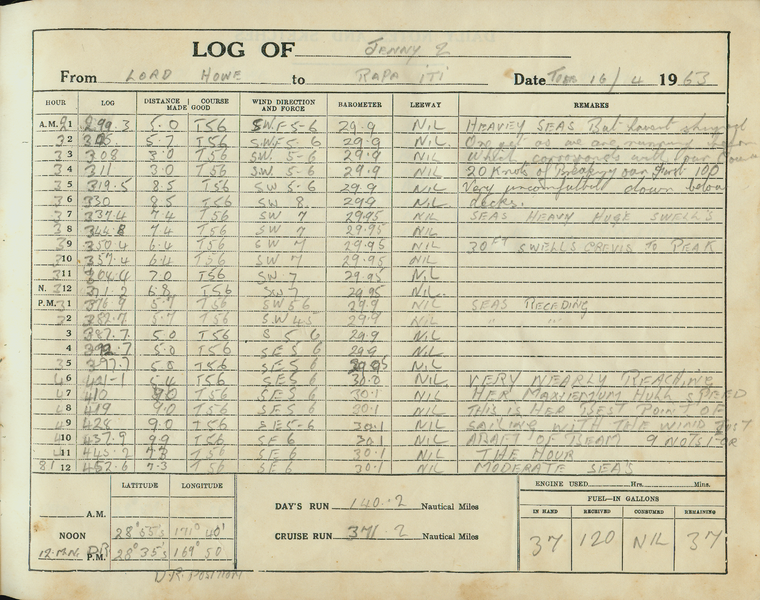 LOG OF Jenny 2
From LORD HOWE to RAPA iTi Date 16/4 1963
HOUR LOG DISTANCE MADE GOOD COURSE WIND DIRECTION AND FORCE BAROMETER LEEWAY REMARKS
A.M. 1 299.3 5.0 T56 S.W.F 5-6 29.9 NiL HEAVIEY SEAS But havent
2 5.7 T56 S.W.F 5-6 29.9 NiL as we are running
3 308 3.0 T56 SW. 5-6 29.9 NiL Which corresponds with our
4 311 3.0 T56 S.W 5-6 29.9 NiL 20 Knots of our First 100
5 319.5 8.5 T56 SW 5-6 29.9 NiL Very uncomfortbl down below
6 330 8.5 T56 SW 8. 299 NiL decks.
7 337.4 7.4 T56 SW 7 29.95 NiL SEAS HEAVY HUGE SWELLS
8 344.8 7.4 T56 SW 7 29.95 NiL
9 350.4 6.4 T56 SW 7 29.95 NiL 30 FT SWELLS CREVIS to PEAK
10 357.4 6.4 T56 SW 7 29.95 NiL
11 7.0 T56 SW 7 29.95 NiL
N. 12 371.2 6.8 T56 SW 7 29.95 NiL
P.M. 1 376.9 5.7 T56 SW 5 6 29.9 NiL SEAS RECEDING
2 382.7 5.7 T56 S.W 4 5 29.9 NiL " "
3 387.7 5.0 T56 S 5 6 29.9 NiL
4 392.7 5.0 T56 S E 5 6 29.9 NiL
5 397.7 5.0 T56 S E 5 6 NiL
6 401-1 5.4 T56 S E 5 6 30.0 NiL VERY NEARLY REACHING
7 410 9.0 T56 S E 5 6 30.1 NiL HER MAXIEMUM HULL SPEED
8 419 9.0 T56 S E 5 6 30.1 NiL THIS IS HER BEST POINT OF
9 428 9.0 T56 S E 5-6 30.1 NiL SAILING WITH THE WIND JUST
10 437.9 9.9 T56 SE 6 30.1 NiL ABAFT OF BEAM 9 NOTS FOR
11 445.2 7.3 T56 SE 6 30.1 NiL THE HOUR
12 452.6 7.3 T56 SE 6 30.1 NiL MODERATE SEAS
LATITUDE LONGITUDE
A.M.
NOON 28° 55's 171° 40'
12.M.N. DR P.M. 28° 35's 169° 50'
D.R. POSITION
DAY'S RUN 140.2 Nautical Miles
CRUISE RUN 371.2 Nautical Miles
ENGINE USED Hrs. Mins.
FUEL—IN GALLONS
IN HAND RECEIVED CONSUMED REMAINING
37 120 NiL 37